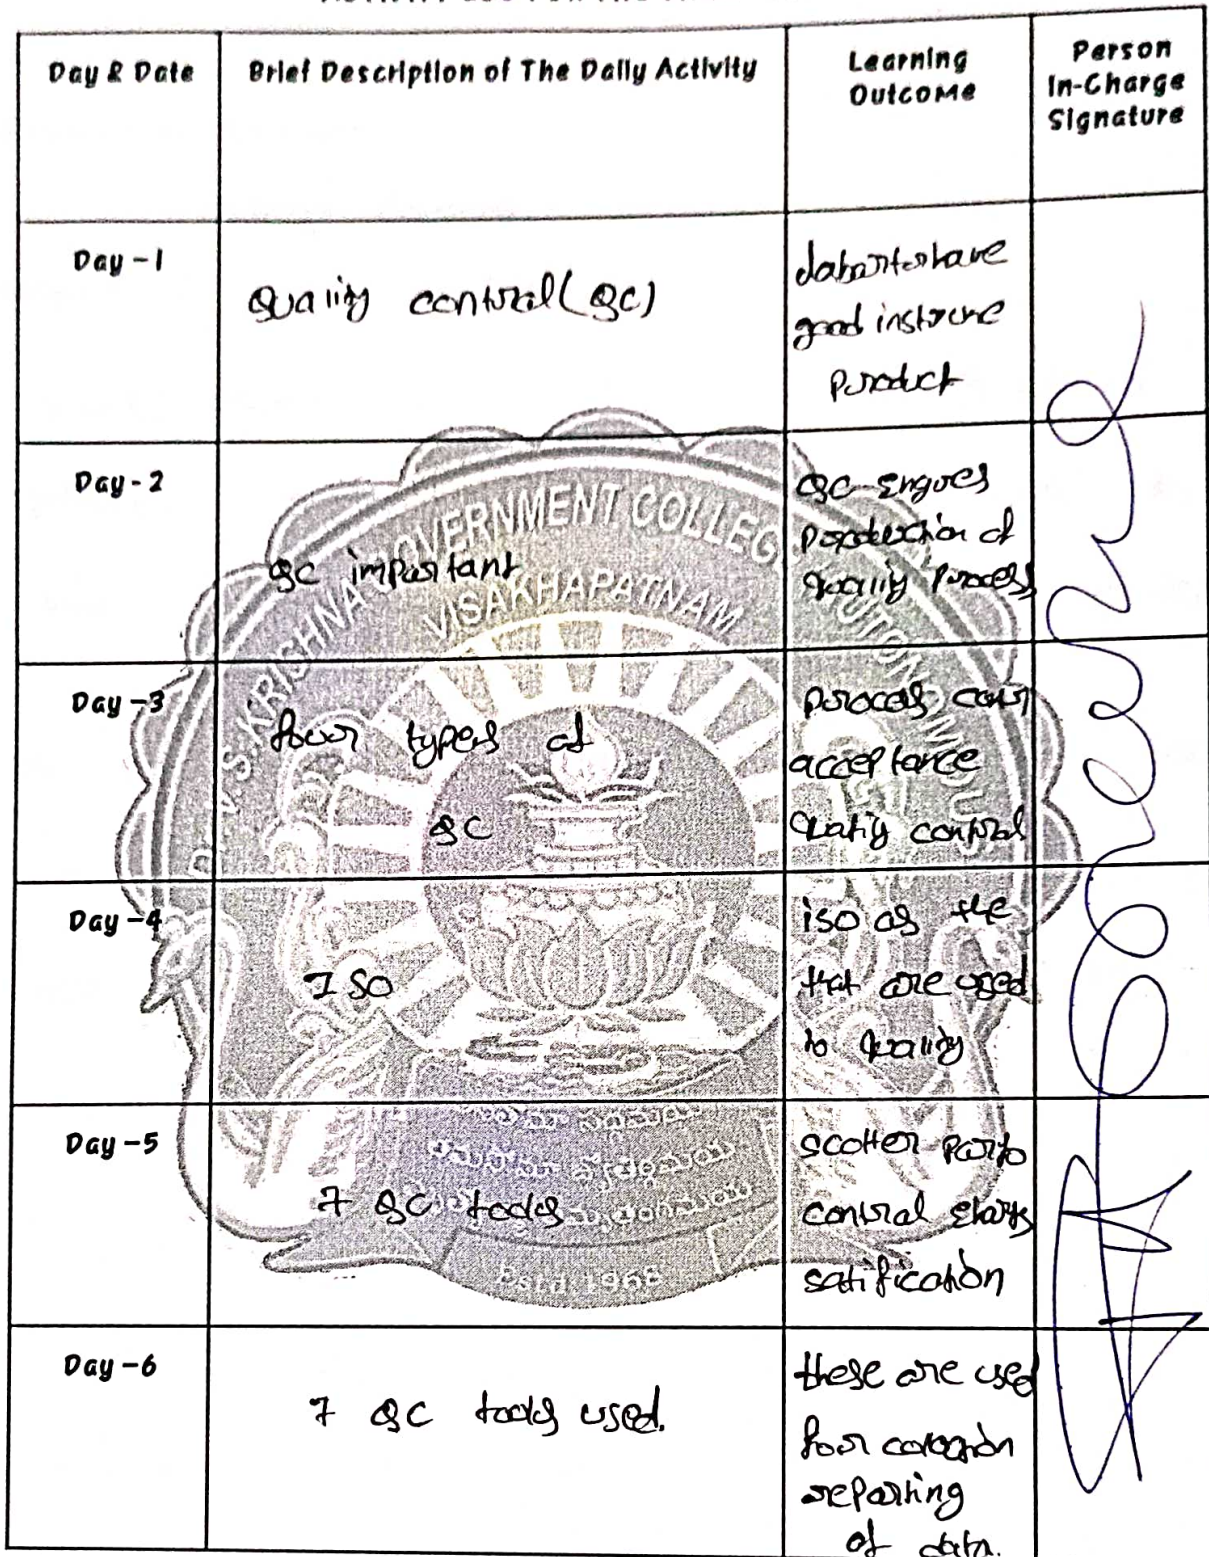 Day & Date
Brief Description of The Daily Activity
Learning
Outcome
Person
In-Charge
Signature
Day -1
Quality control (QC)
good
product
Day - 2
QC important
QC
production of
quality process
Day -3
four types of
QC
process
acceptance
control
Day -4
ISO
iso as the
that are used
to quality
Day -5
7 QC tools
scotter
control
satification
Day -6
7 QC tools used.
these are used
for
reparting
of data.
V.S. KRISHNA GOVERNMENT COLLEG
VISAKHAPATNAM
Estd 1968